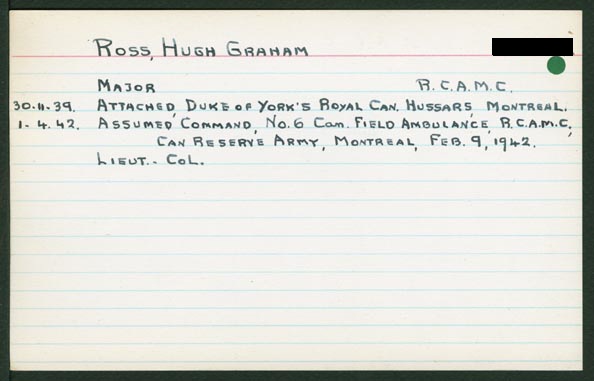 Ross, Hugh Graham
Major R.C.A.M.C.
30.11.39. Attached, Duke of York's Royal Can. Hussars, Montreal.
1.4.42. Assumed Command, No. 6 Can. Field Ambulance, R.C.A.M.C,
Can Reserve Army, Montreal, Feb. 9, 1942.
Lieut.. Col.